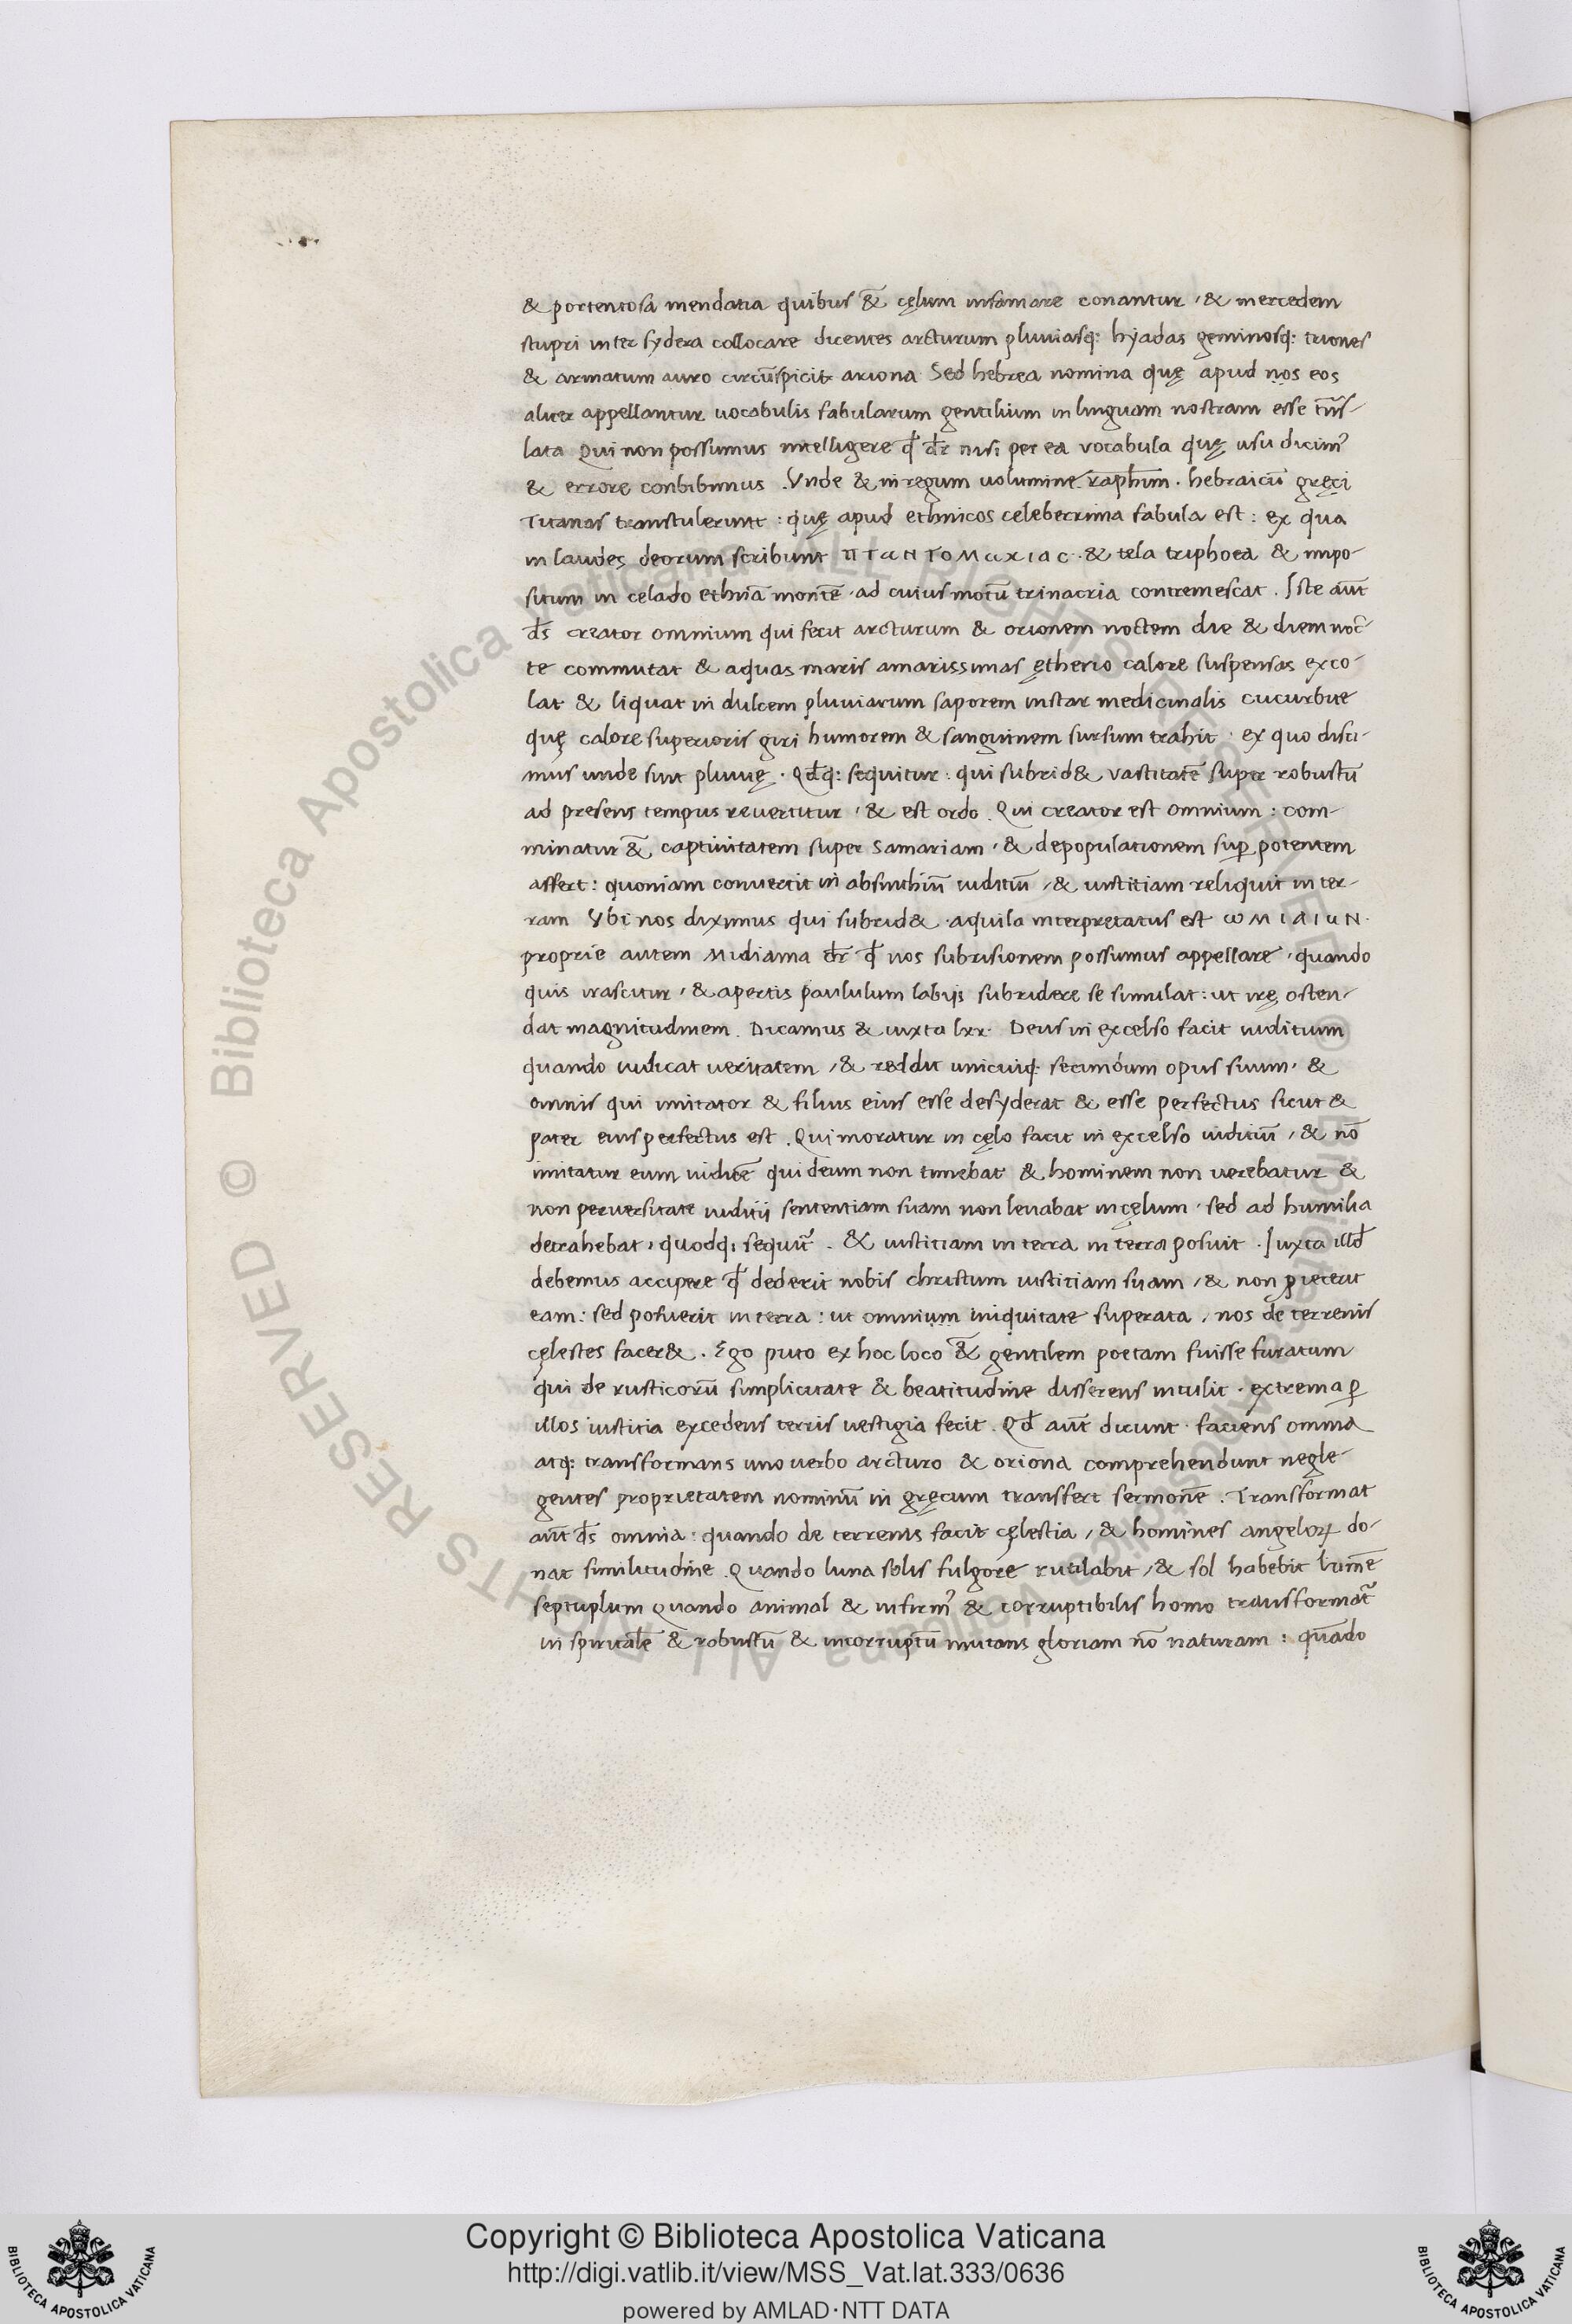 & portentosa mendatia quibus &̄ cęlum infamare conantur, & mercedem
stupri inter sydera collocare dicentes arcturum pluuiasq: hyadas geminosq: triones
& armatum auro circūspicit ariona Sed hebrea nomina quę apud nos eos
aliter appellantur uocabulis fabularum gentilium in linguam nostram esse trn̄s-
lata Qui non possumus intelligere qđ dr̄ nisi per ea vocabula quę usu dicim᾽
& errore conbibimus . Vnde & in regum uolumine raphim . hebraicū gręci
Titanas transtulerunt : quę apud ethnicos celeberrima fabula est : ex qua
in laudes deorum scribunt ΠΤαΝΤοΜαχιας . & tela triphoea & impo-
situm in celado ethnā montē . ad cuius motū trinacria contremescat . Iste aūt
ds̄ creator omnium qui fecit arcturum & orionem noctem die & diem noc̄-
te commutat & aquas maris amarissimas ętherio calore suspensas exco-
lat & liquat in dulcem pluuiarum saporem instar medicinalis cucurbite
quę calore superioris giri humorem & sanguinem sursum trahit . ex quo disci-
mus unde sint pluuię . Qđq: sequitur : qui subrid& vastitatē super robustū
ad presens tempus reuertitur , & est ordo . Qui creator est omnium : com-
minatur &̄ captiuitatem super samariam , & depopulationem suꝑ potentem
affert : quoniam conuertit in absinthiū iuditiū , & iustitiam reliquit in ter-
ram Ybi nos diximus qui subrid& . aquila interpretatus est ωΜΙΔΙαΝ .
proprie autem Midiama dr̄ qđ nos subrisionem possumus appellare , quando
quis irascitur , & apertis paululum labijs subridere se simulat : ut irę osten-
dat magnitudinem . Dicamus & iuxta lxx . Deus in excelso facit iuditium
quando iudicat ueritatem , & reddit unicuiq: secundum opus suum , &
omnis qui imitator & filius eius esse desyderat & esse perfectus sicut &
pater eius perfectus est . Qui moratur in cęlo facit in excelso iuditiū , & nō
imitatur eum iudicē qui deum non timebat & hominem non uerebatur &
non peruersitate iuditij sententiam suam non leuabat in cęlum , sed ad humilia
detrahebat , quodq; sequit᷑ . & iustitiam in terra in terra posuit . Iuxta illđ
debemus accipere qđ dederit nobis christum iustitiam suam , & non ꝓiecerit
eam : sed posuerit in terra : ut omnium iniquitate superata , nos de terrenis
cęlestes facer& . Ego puto ex hoc loco &̄ gentilem poetam fuisse furatum
qui de rusticorū simplicitate & beatitudine disserens intulit . extrema ꝑ
illos iustitia excedens terris uestigia fecit . Qđ aūt dicunt . faciens omnia
atq: transformans uno uerbo arcturo & oriona comprehendunt negle-
gentes proprietatem nominū in gręcum transfert sermonē . Transformat
aūt ds̄ omnia : quando de terrenis facit cęlestia , & homines angeloꝝ do-
nat similitudine . Quando luna solis fulgore rutilabit , & sol habebit lumē
septuplum Quando animal & infirm᾽ & corruptibilis homo transformat᷑
in spiritalē & robustū & incorruptū mutans gloriam nō naturam : quādo
Copyright © Biblioteca Apostolica Vaticana
http://digi.vatlib.it/view/MSS_Vat.lat.333/0636
powered by AMLAD·NTT DATA